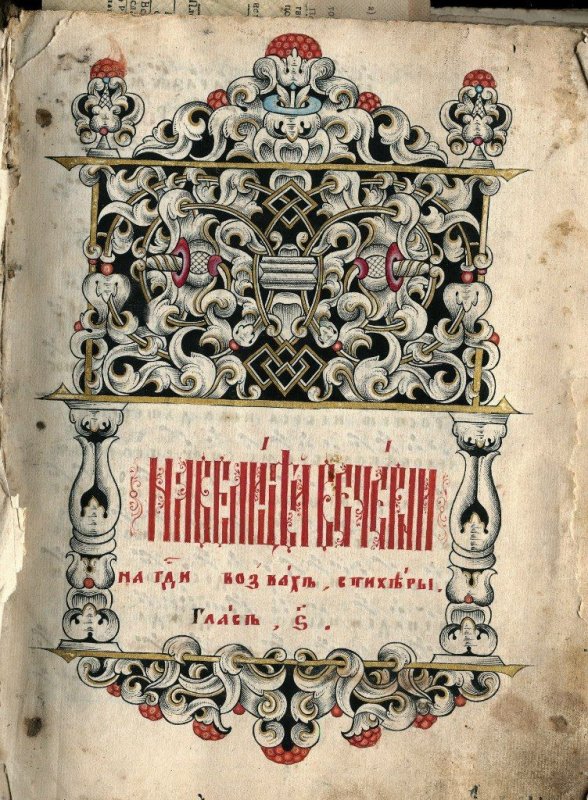 НАВЕЛИ́ЦѢЙ ВЕЧЕ́РНИ
на гд҃и воззвахъ, стихѣры.
Гла́съ, ѕ҃.